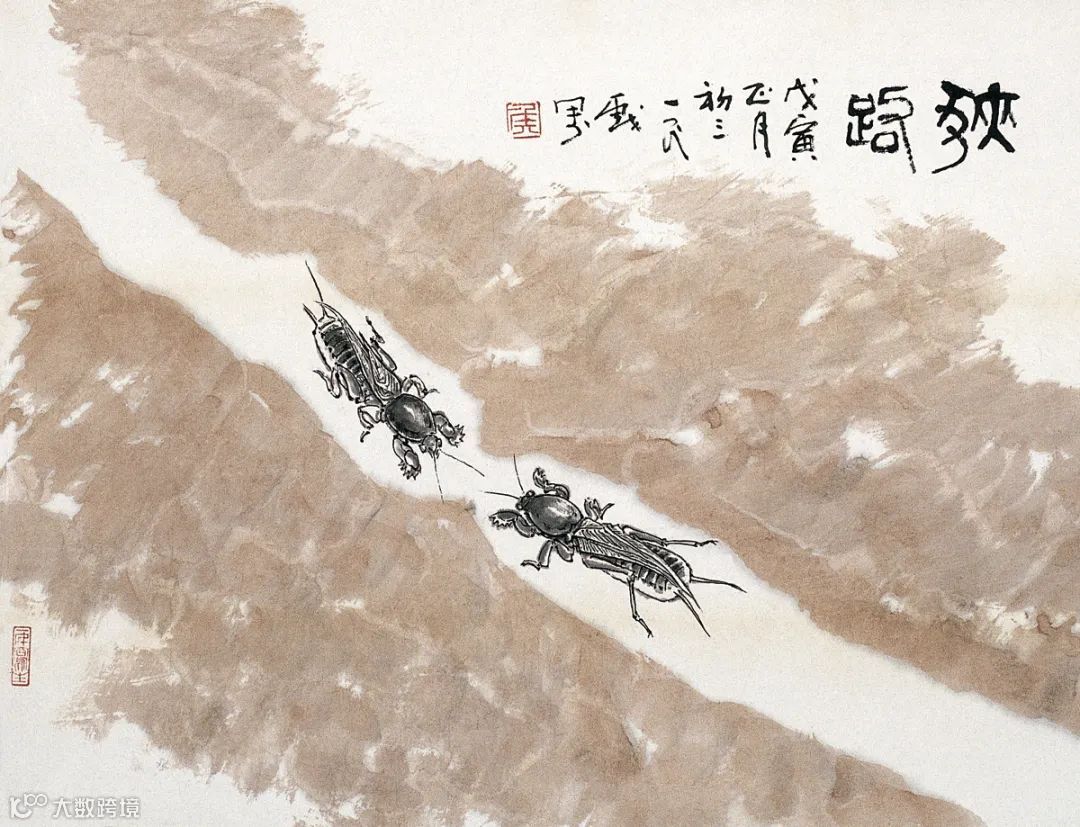 狹路
戊寅
正月
初三
一民
戲
墨
侯
大数跨境